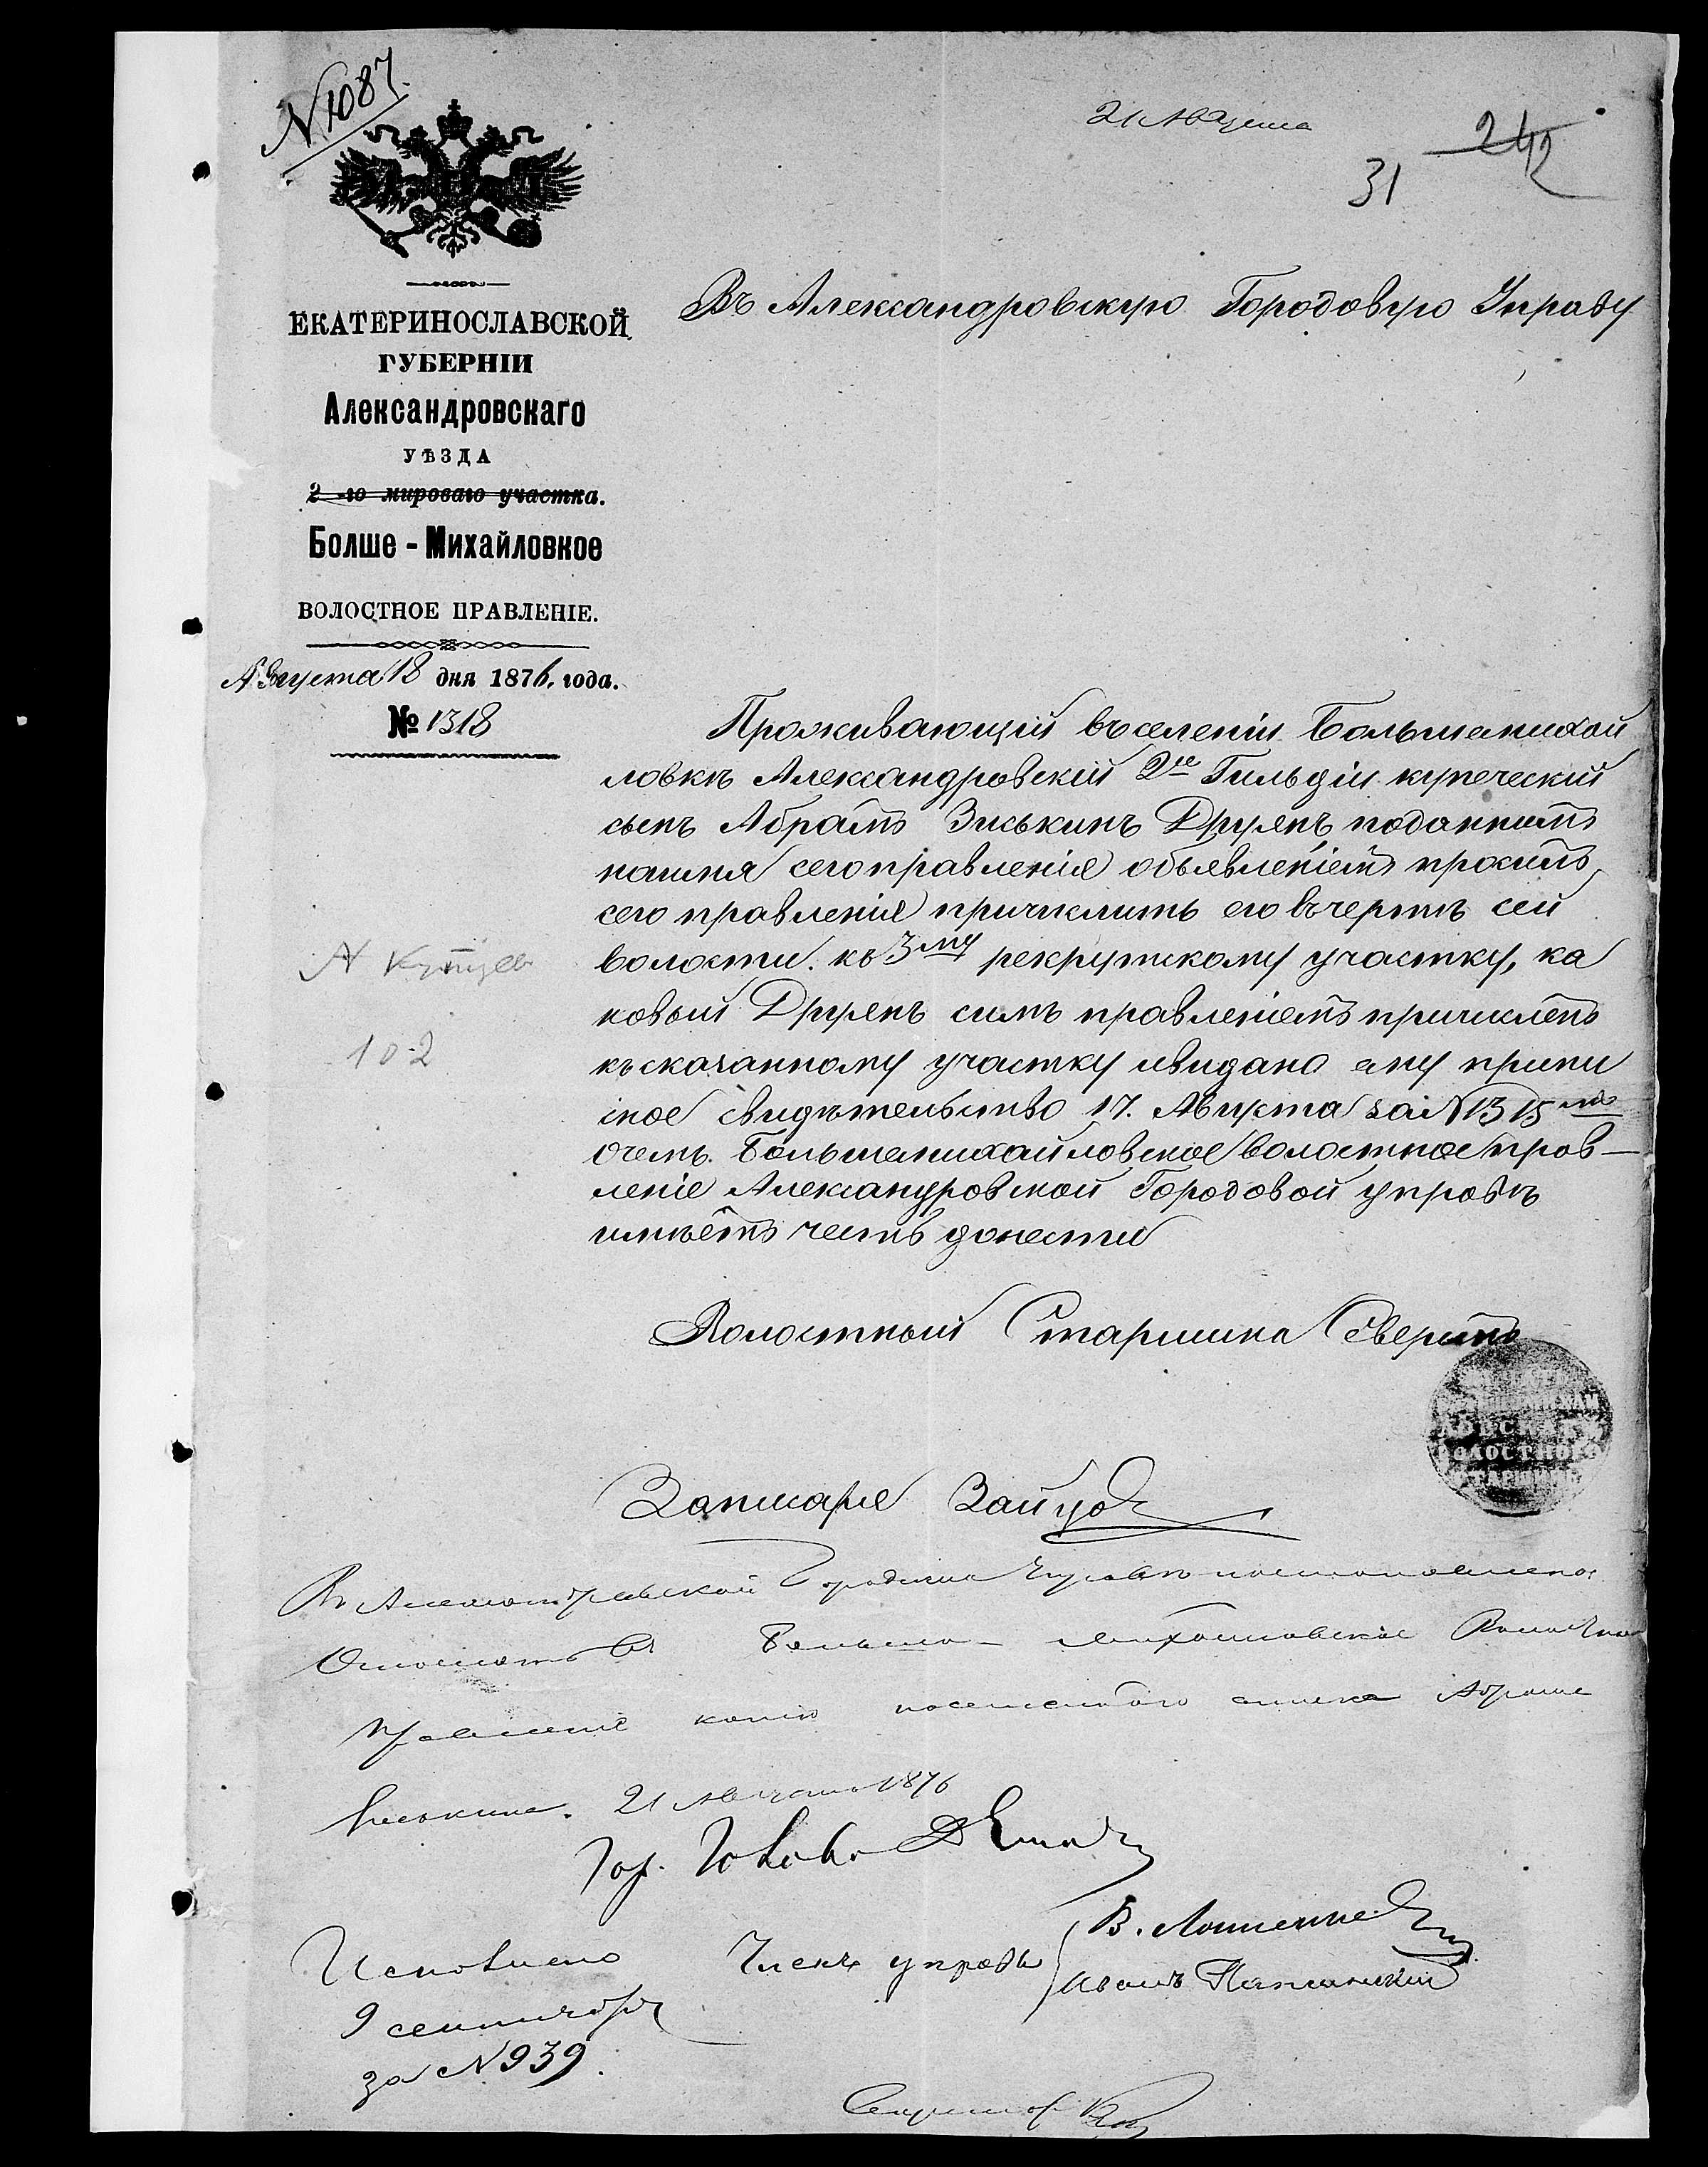 N 1087.
21 Августа
242
31
ЕКАТЕРИНОСЛАВСКОЙ
ГУБЕРНІИ
Александровскаго
УѢЗДА
2-го мироваго участка.
Болше-Михайловкое
ВОЛОСТНОЕ ПРАВЛЕНІЕ.
Августа 18 дня 1876. года.
№ 1318
Въ Александровскую Городовую Управу
Проживающій въ селеніи Большемихай
ловкѣ Александровскій 2й Гильдіи купеческій
сынъ Абрамъ Зиськинъ Друянъ поданнымъ
наимя сего правленія объявленіемъ проситъ
сего правленіе причислить его въчертѣ сей
волости. къ 3му рекрутскому участку, ка
ковый Друянъ симъ правленіемъ причисленъ
къ сказанному участку ивидано ему припи
сное свидѣтельство 17. Августа за N 1315мъ
Очемъ. Большемихайловское волостное прав-
леніе Александровской Городовой управѣ
имѣетъ честь донести
А Купцев
102
Волостный Старшина Северинъ
ВОЛОСТНОГО
СТАРШИНЫ
Запысаря Зайцов
В Александровской Городской Управѣ постановлено
Отослать в Больше-Михайловское Волостное
Правленіе копію посемейного списка Абрама
Зиськина. 21 Августа 1876
Гор. Голова
Члены управы
В.
Иванъ
Исполнено
9 сентября
за N 939.
Секретарь